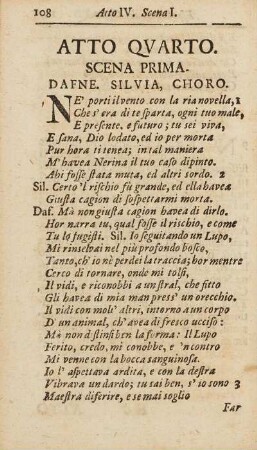 108 Atto IV. Scena I.
ATTO QVARTO.
SCENA PRIMA.
DAFNE. SILVIA, CHORO.
NE' porti il vento con la ria novella, 1
Che s' era di te sparta, ogni tuo male,
E presente, e futuro; tu sei viva,
E sana, Dio lodato, ed io per morta
Pur hora ti tenea; in tal maniera
M' havea Nerina il tuo caso dipinto.
Ahi fosse stata muta, ed altri sordo. 2
Sil. Certo 'l rischio fù grande, ed ella havea
Giusta cagion di sospettarmi morta.
Daf. Mà non giusta cagion havea di dirlo.
Hor narra tu, qual fosse il rischio, e come
Tu lo fugisti. Sil. Io seguitando un Lupo,
Mi rinselvai nel più profondo bosco,
Tanto, ch' io nè perdei la traccia; hor mentre
Cerco di tornare, onde mi tolsi,
Il vidi, e riconobbi a un stral, che fitto
Gli havea di mia man press' un orecchio.
Il vidi con molt' altri, intorno a un corpo
D' un animal, ch' avea di fresco ucciso:
Mà non distinsi ben la forma: Il Lupo
Ferito, credo, mi conobbe, e 'n contro
Mi venne con la bocca sanguinosa.
Io l' aspettava ardita, e con la destra
Vibrava un dardo; tu sai ben, s' io sono 3
Maestra di ferire, e se mai soglio
Far